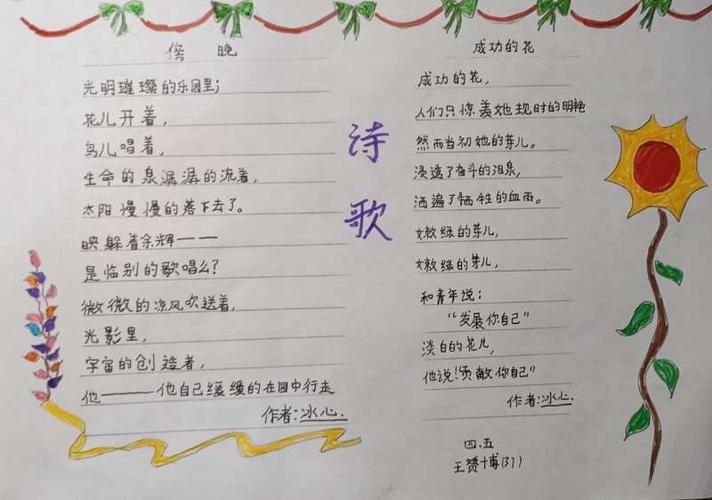 傍 晚
光明璀璨的乐园里;
花儿开着,
鸟儿唱着,
生命的泉潺潺的流着,
太阳慢慢的落下去了。
映躲着余辉——
是临别的歌唱么?
微微的凉风吹送着,
光影里,
宇宙的创造者,
他———他自己缓缓的在园中行走
作者:冰心.
诗
歌
成功的花
成功的花,
人们只惊羡她现时的明艳
然而当初她的芽儿。
浸透了奋斗的泪泉,
洒遍了牺牲的血雨。
嫩绿的芽儿,
嫩绿的芽儿,
和青年说:
“发展你自己”
淡白的花儿,
他说!贡献你自己”
作者:冰心.
四.五
王 博(37)